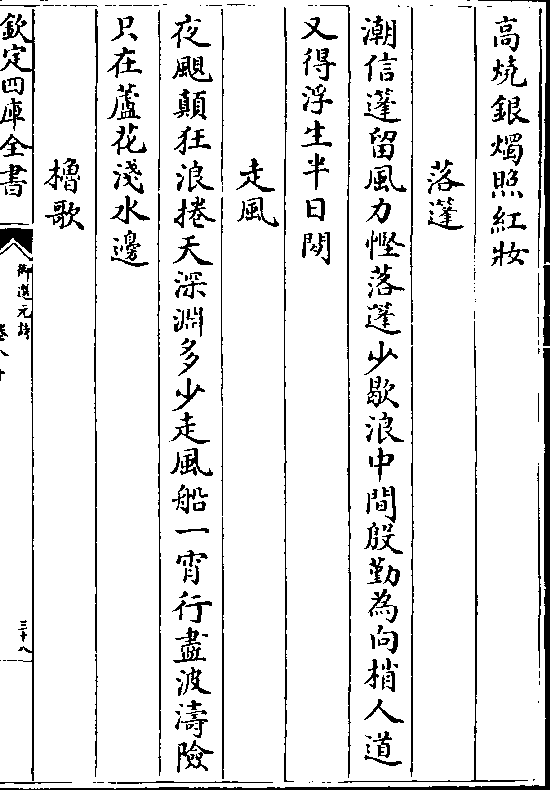 高燒銀燭照紅妝
落蓬
潮信蓬留風力慳落蓬少歇浪中間殷勤為向梢人道
又得浮生半日閒
走風
夜颶顛狂浪捲天深淵多少走風船一宵行盡波濤險
只在蘆花淺水邊
櫓歌
欽定四庫全書
御選元詩
卷八十
三十八